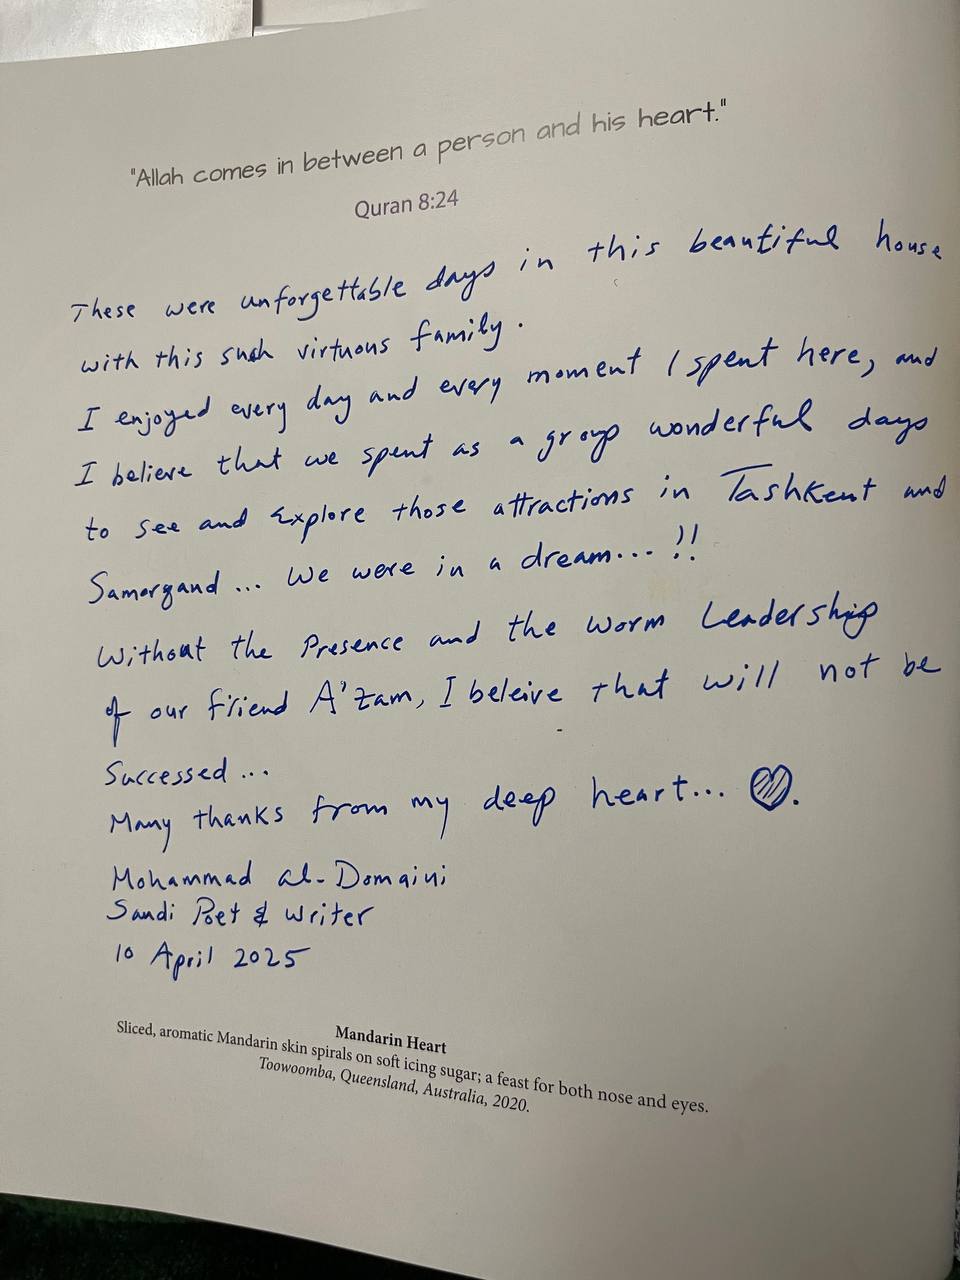 "Allah comes in between a person and his heart."
Quran 8:24
These were unforgettable days in this beautiful house
with this such virtuous family.
I enjoyed every day and every moment I spent here, and
I believe that we spent as a group wonderful days
to see and Explore those attractions in Tashkent and
Samarqand ... We were in a dream... !!
Without the Presence and the worm Leadership
of our friend A'zam, I beleive that will not be
Successed ...
Many thanks from my deep heart... ♡.
Mohammad al-Domaini
Saudi Poet & Writer
10 April 2025
Mandarin Heart
Sliced, aromatic Mandarin skin spirals on soft icing sugar; a feast for both nose and eyes.
Toowoomba, Queensland, Australia, 2020.